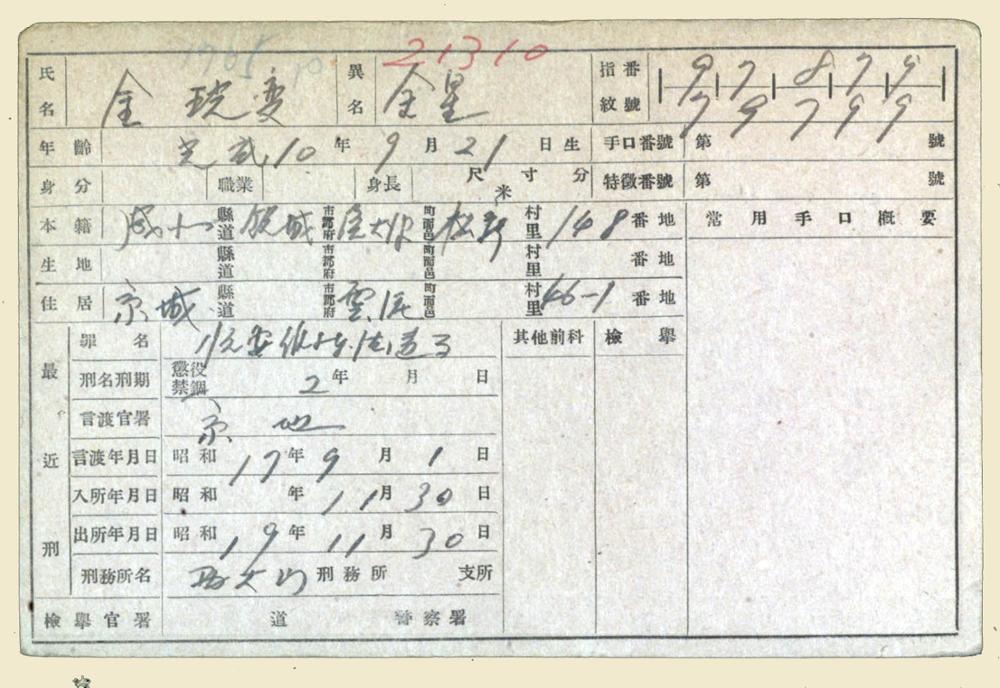 1765 10 21310
氏名 金 珖燮 異名 金星 指紋番號 9 7 8 7 9
7 9 7 9 9
年齡 光武 10年 9月 21日生 手口番號 第 號
身分 職業 身長 尺寸分 米 特徵番號 第 號
本籍 咸十 縣道 鏡城 市郡府 漁大津 町面邑 松新 村里 148 番地 常用手口概要
生地 縣道 市郡府 町面邑 村里 番地
住居 京城 縣道 市郡府 雲泥 町面邑 村里 46-1 番地
最近刑 罪名 治安維持法違反 其他前科 檢擧
刑名刑期 懲役 禁錮 2年 月 日
言渡官署 京地
言渡年月日 昭和 17年 9月 1日
入所年月日 昭和 年 11月 30日
出所年月日 昭和 19年 11月 30日
刑務所名 西大門 刑務所 支所
檢擧官署 道 警察署